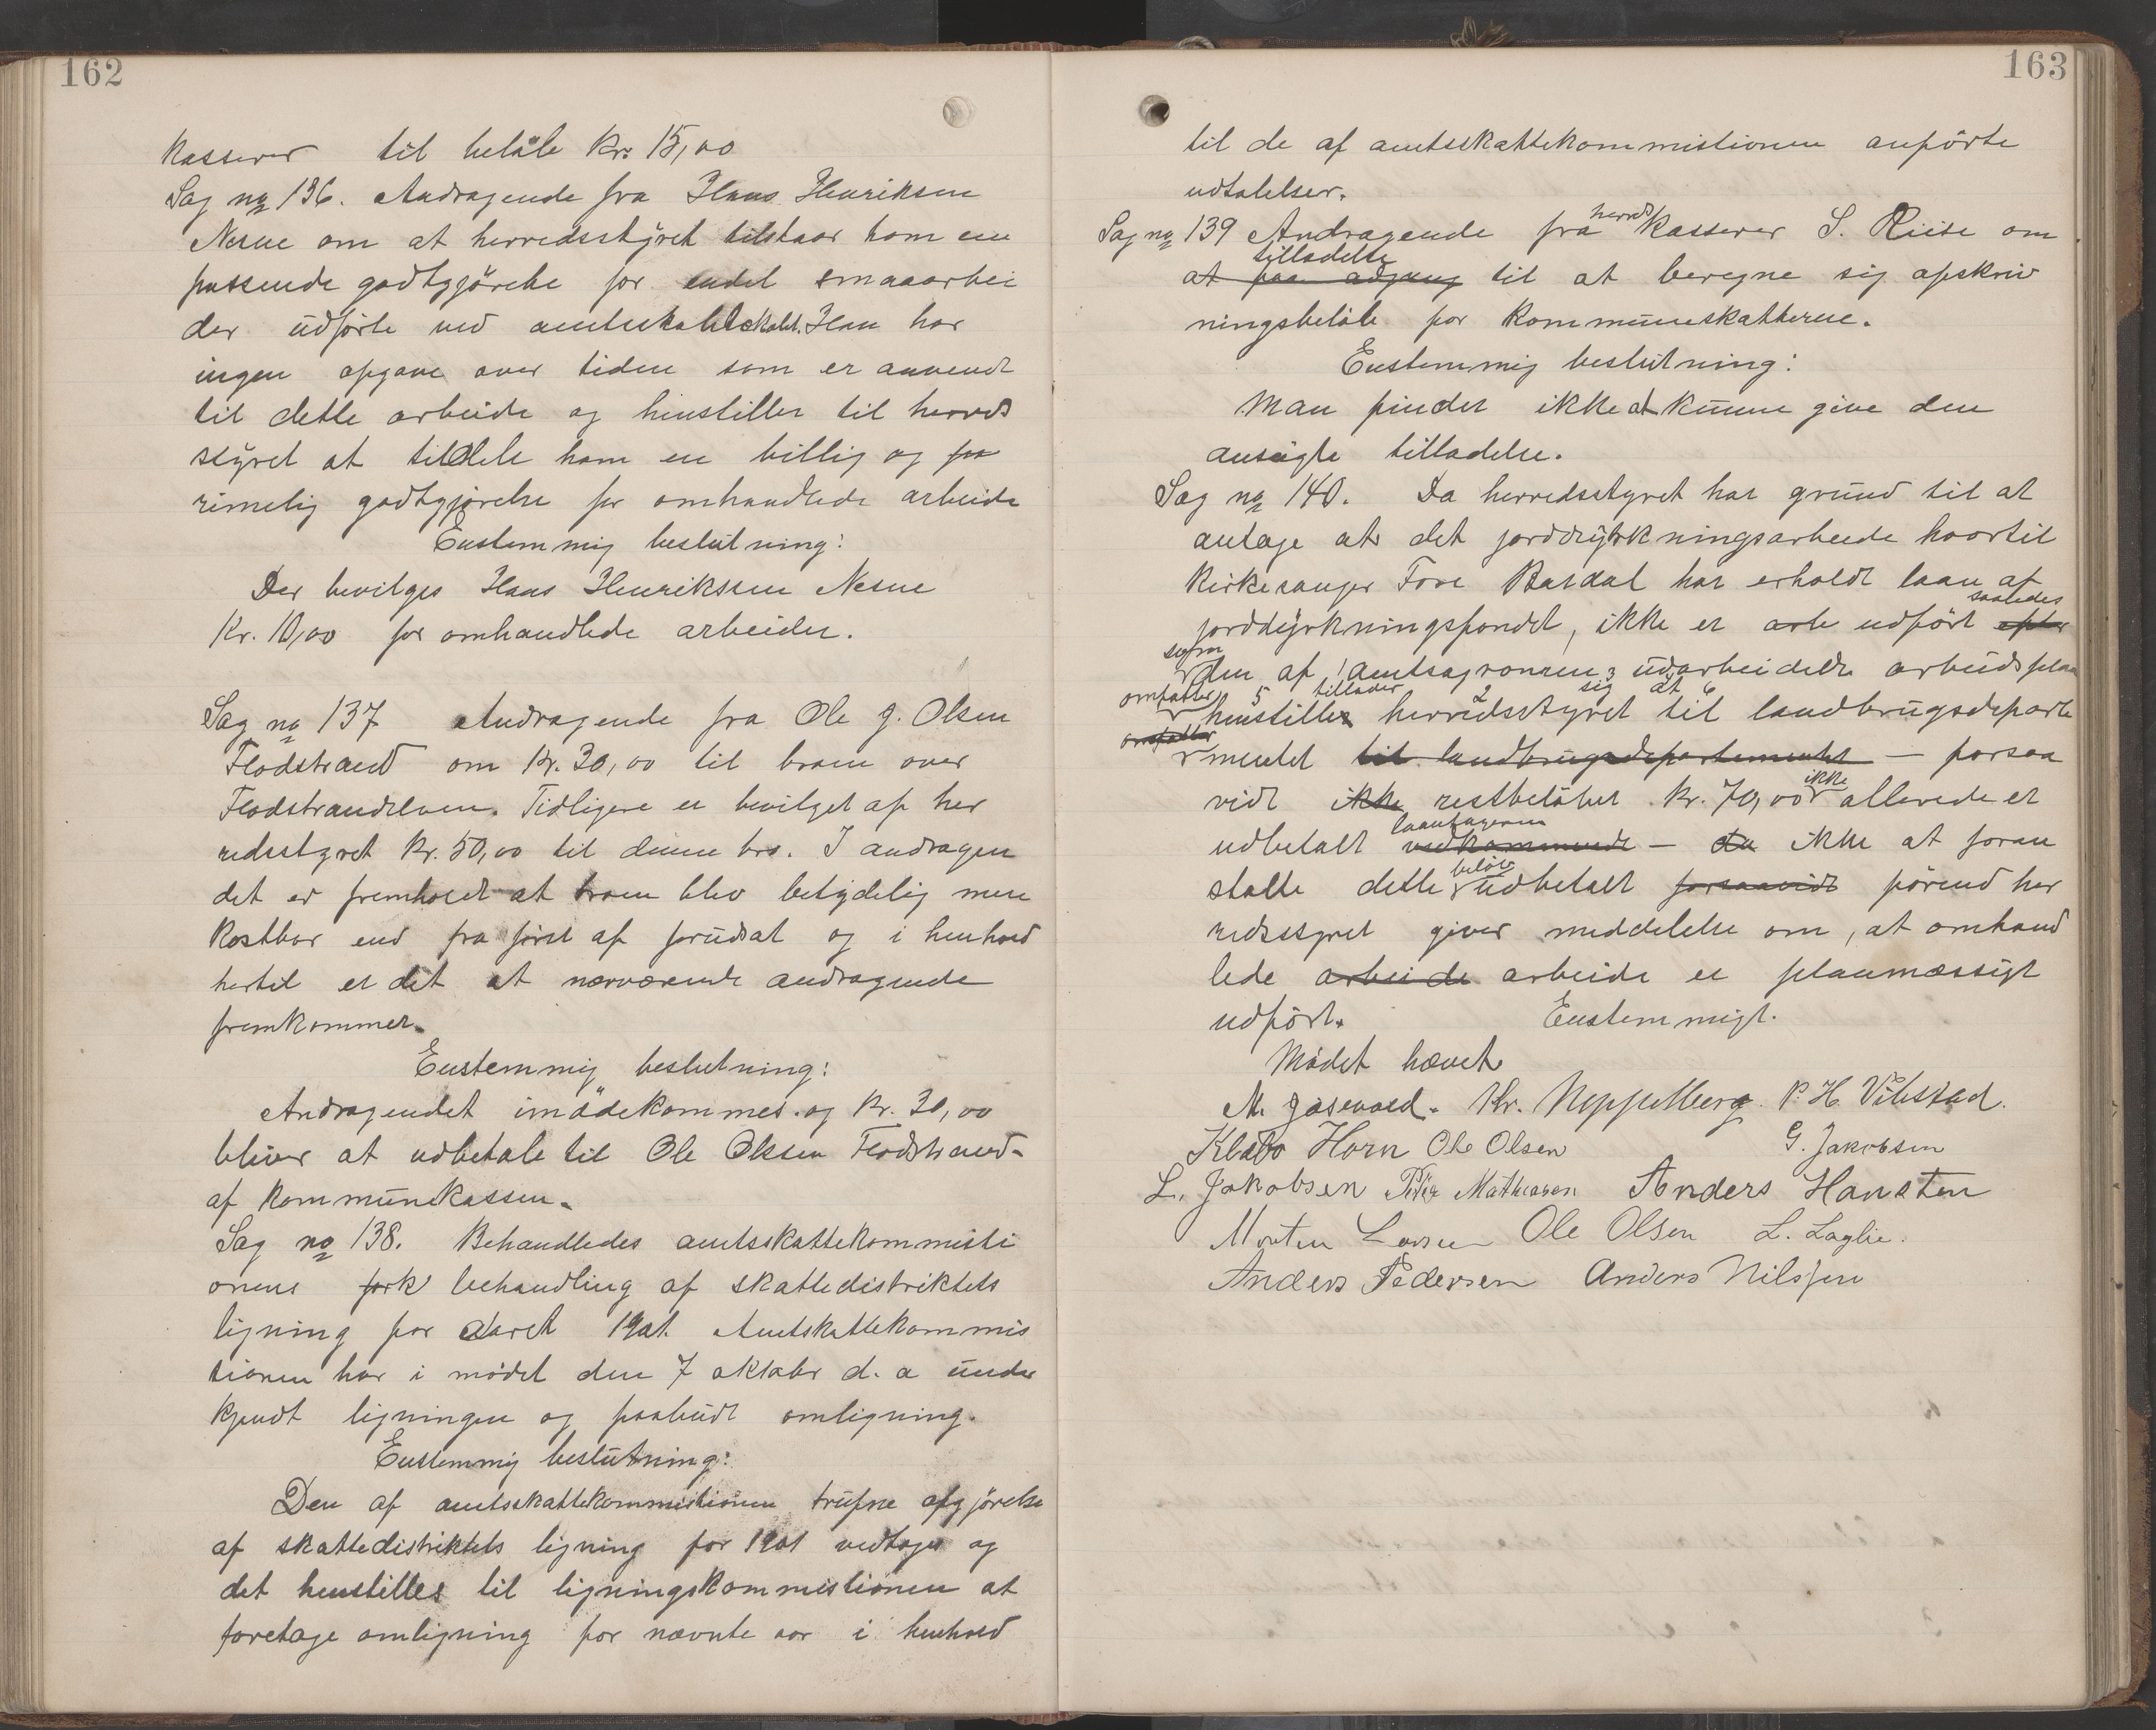 162
kasserer til beløb kr. 15,00
Sag no 136. Andragende fra Hans Henriksen
Nesne om at herredsstyret tilstaar ham en
passende godtgjörelse for endel smaaarbei
der udförte ved Han har
ingen opgave over tiden som er anvendt
til dette arbeide og henstiller til herreds
styret at tildele ham en billig og
rimelig godtgjörelse for omhandlede arbeide
Enstemmig beslutning:
Der bevilges Hans Henriksen Nesne
Kr. 10,00 for omhandlede arbeider.
Sag no 137 Andragende fra Ole J. Olsen
Flodstrand om Kr. 30,00 til broen over
Flodstrandelven. Tidligere er bevilget af her
redsstyret kr. 50,00 til denne bro. I andragen
det er fremholdt at broen blev betydelig mere
kostbar end fra först af forudsat og i henhold
hertil er det at nærværende andragende
fremkommer.
Enstemmig beslutning:
Andragendet imödekommes og kr. 30,00
bliver at udbetale til Ole Olsen Flodstrand
af kommunekassen.
Sag no 138. Behandledes amtsskattekommissi
onens fork behandling af skattedistriktets
ligning for aaret 1901. Amtskattekommis
sionen har i mödet den 7 oktober d. a under
kjendt ligningen og paabudt omligning.
Enstemmig beslutning:
Den af amtsskattekommissionen trufne afgjörelse
af skattedistriktets ligning for 1901 vedtages og
det henstilles til ligningskommissionen at
foretage omligning for nævnte aar i henhold
163
til de af amtsskattekommissionen anförte
udtalelser.
Sag no 139 Andragende fra herreds kasserer S. Riise om
tilladelse
at faa adgang til at beregne sig afskriv
ningsbeløb for kommuneskatterne.
Enstemmig beslutning:
Man finder ikke at kunne give den
ansögte tilladelse.
Sag no 140. Da herredsstyret har grund til at
antage at det jorddyrkningsarbeide hvortil
Kirkesanger Tore Bardal har erholdt laan af
jorddyrkningsfondet, ikke er arb udfört saaledes efter
som
den af amtsagronomen udarbeidede arbeidsplan
omfatter 5 tillader 2 sig at 6
henstiller herredsstyret til landbrugsdeparte
omfatter
mentet til landbrugsdepartementet — forsaa
vidt ikke restbelöbet kr. 70,00 ikke allerede er
udbetalt laantageren vedkommende — da ikke at foran
stalte dette belöb udbetalt forsaavidt förend her
redsstyret giver meddelelse om, at omhand
lede arbeide arbeide er planmæssigt
udfört. Enstemmigt.
Mödet hævet
A. Jösevold. Kr. Neppelberg. P. H. Vibstad.
Klabo Horn Ole Olsen G. Jakobsen
L. Jakobsen Peter Mathiasen Anders Hansten
Morten Larsen Ole Olsen L. Laglie.
Anders Pedersen Anders Nilssen